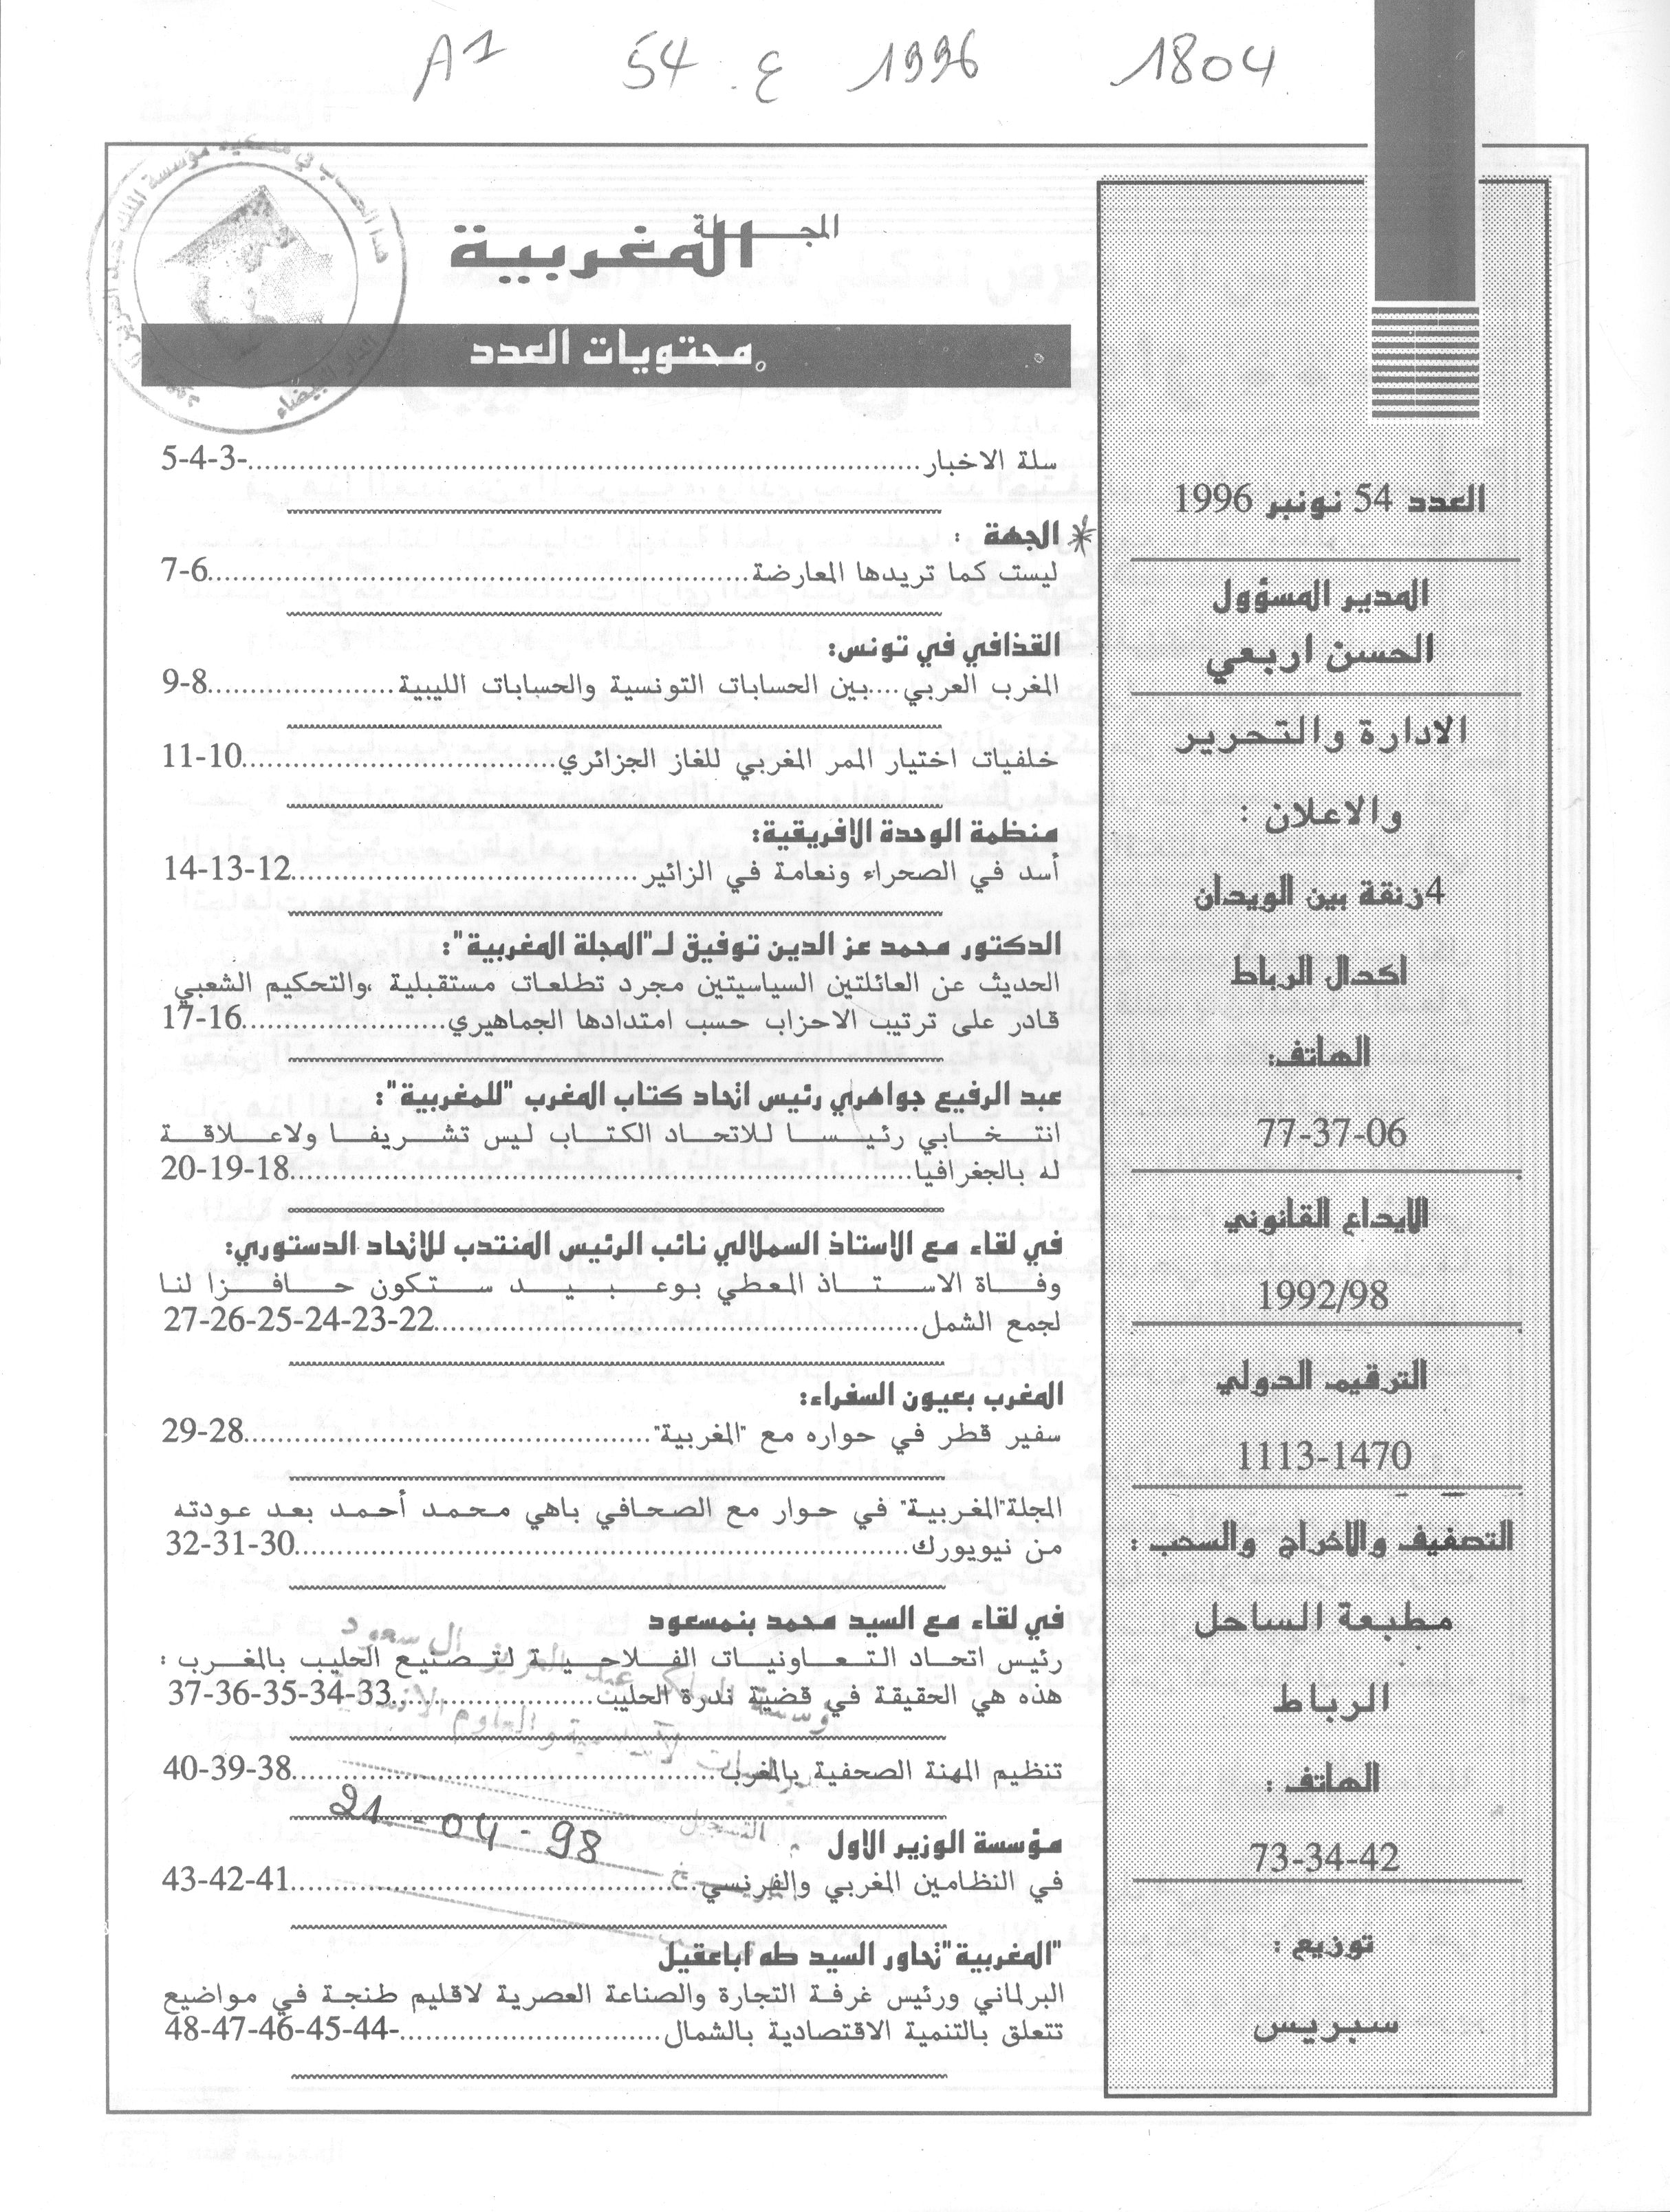 A1 54 .ع 1996 1804
المجلة
المغربية
محتويات العدد
سلة الاخبار..........-3-4-5
الجهة :
ليست كما تريدها المعارضة..........6-7
القذافي في تونس:
المغرب العربي....بين الحسابات التونسية والحسابات الليبية..........8-9
خلفيات اختيار الممر المغربي للغاز الجزائري..........10-11
منظمة الوحدة الافريقية:
أسد في الصحراء ونعامة في الزائير..........12-13-14
الدكتور محمد عز الدين توفيق لـ"المجلة المغربية":
الحديث عن العائلتين السياسيتين مجرد تطلعات مستقبلية ،والتحكيم الشعبي
قادر على ترتيب الاحزاب حسب امتدادها الجماهيري..........16-17
عبد الرفيع جواهري رئيس اتحاد كتاب المغرب "للمغربية":
انتخابي رئيسا للاتحاد الكتاب ليس تشريفا ولاعلاقة
له بالجغرافيا..........18-19-20
في لقاء مع الاستاذ السملالي نائب الرئيس المنتدب للاتحاد الدستوري:
وفاة الاستاذ المعطي بوعبيد ستكون حافزا لنا
لجمع الشمل..........22-23-24-25-26-27
المغرب بعيون السفراء:
سفير قطر في حواره مع "المغربية"..........28-29
المجلة"المغربية" في حوار مع الصحافي باهي محمد أحمد بعد عودته
من نيويورك..........30-31-32
في لقاء مع السيد محمد بنمسعود
رئيس اتحاد التعاونيات الفلاحية لتصنيع الحليب بالمغرب :
هذه هي الحقيقة في قضية ندرة الحليب..........33-34-35-36-37
تنظيم المهنة الصحفية بالمغرب..........38-39-40
21-04-98
مؤسسة الوزير الاول
في النظامين المغربي والفرنسي..........41-42-43
"المغربية"تحاور السيد طه أباعقيل
البرلماني ورئيس غرفة التجارة والصناعة العصرية لاقليم طنجة في مواضيع
تتعلق بالتنمية الاقتصادية بالشمال..........-44-45-46-47-48
العدد 54 نونبر 1996
المدير المسؤول
الحسن اربعي
الادارة والتحرير
والاعلان :
4زنقة بين الويدان
اكدال الرباط
الهاتف:
77-37-06
الايداع القانوني
1992/98
الترقيم الدولي
1113-1470
التصفيف والاخراج والسحب :
مطبعة الساحل
الرباط
الهاتف :
73-34-42
توزيع :
سبريس